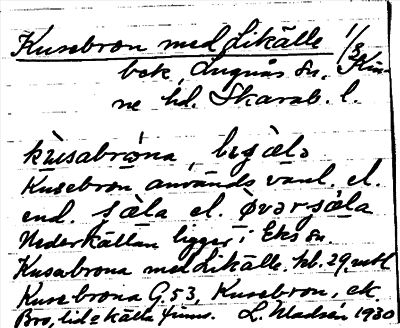 Kusebron med Likälle 1/8
bek, Lugnås sn, Kin-
ne hd. Skarab. l.
kusabrona,
Kusebron används vanl. el.
end. säla el. övarsäla
Nederkällan ligger i Eks sn.
Kusabrona med Likälle, hb. 29,
Kusebrona G. 53, Kusebron, ek
Bro, hd = källa finns. 1930